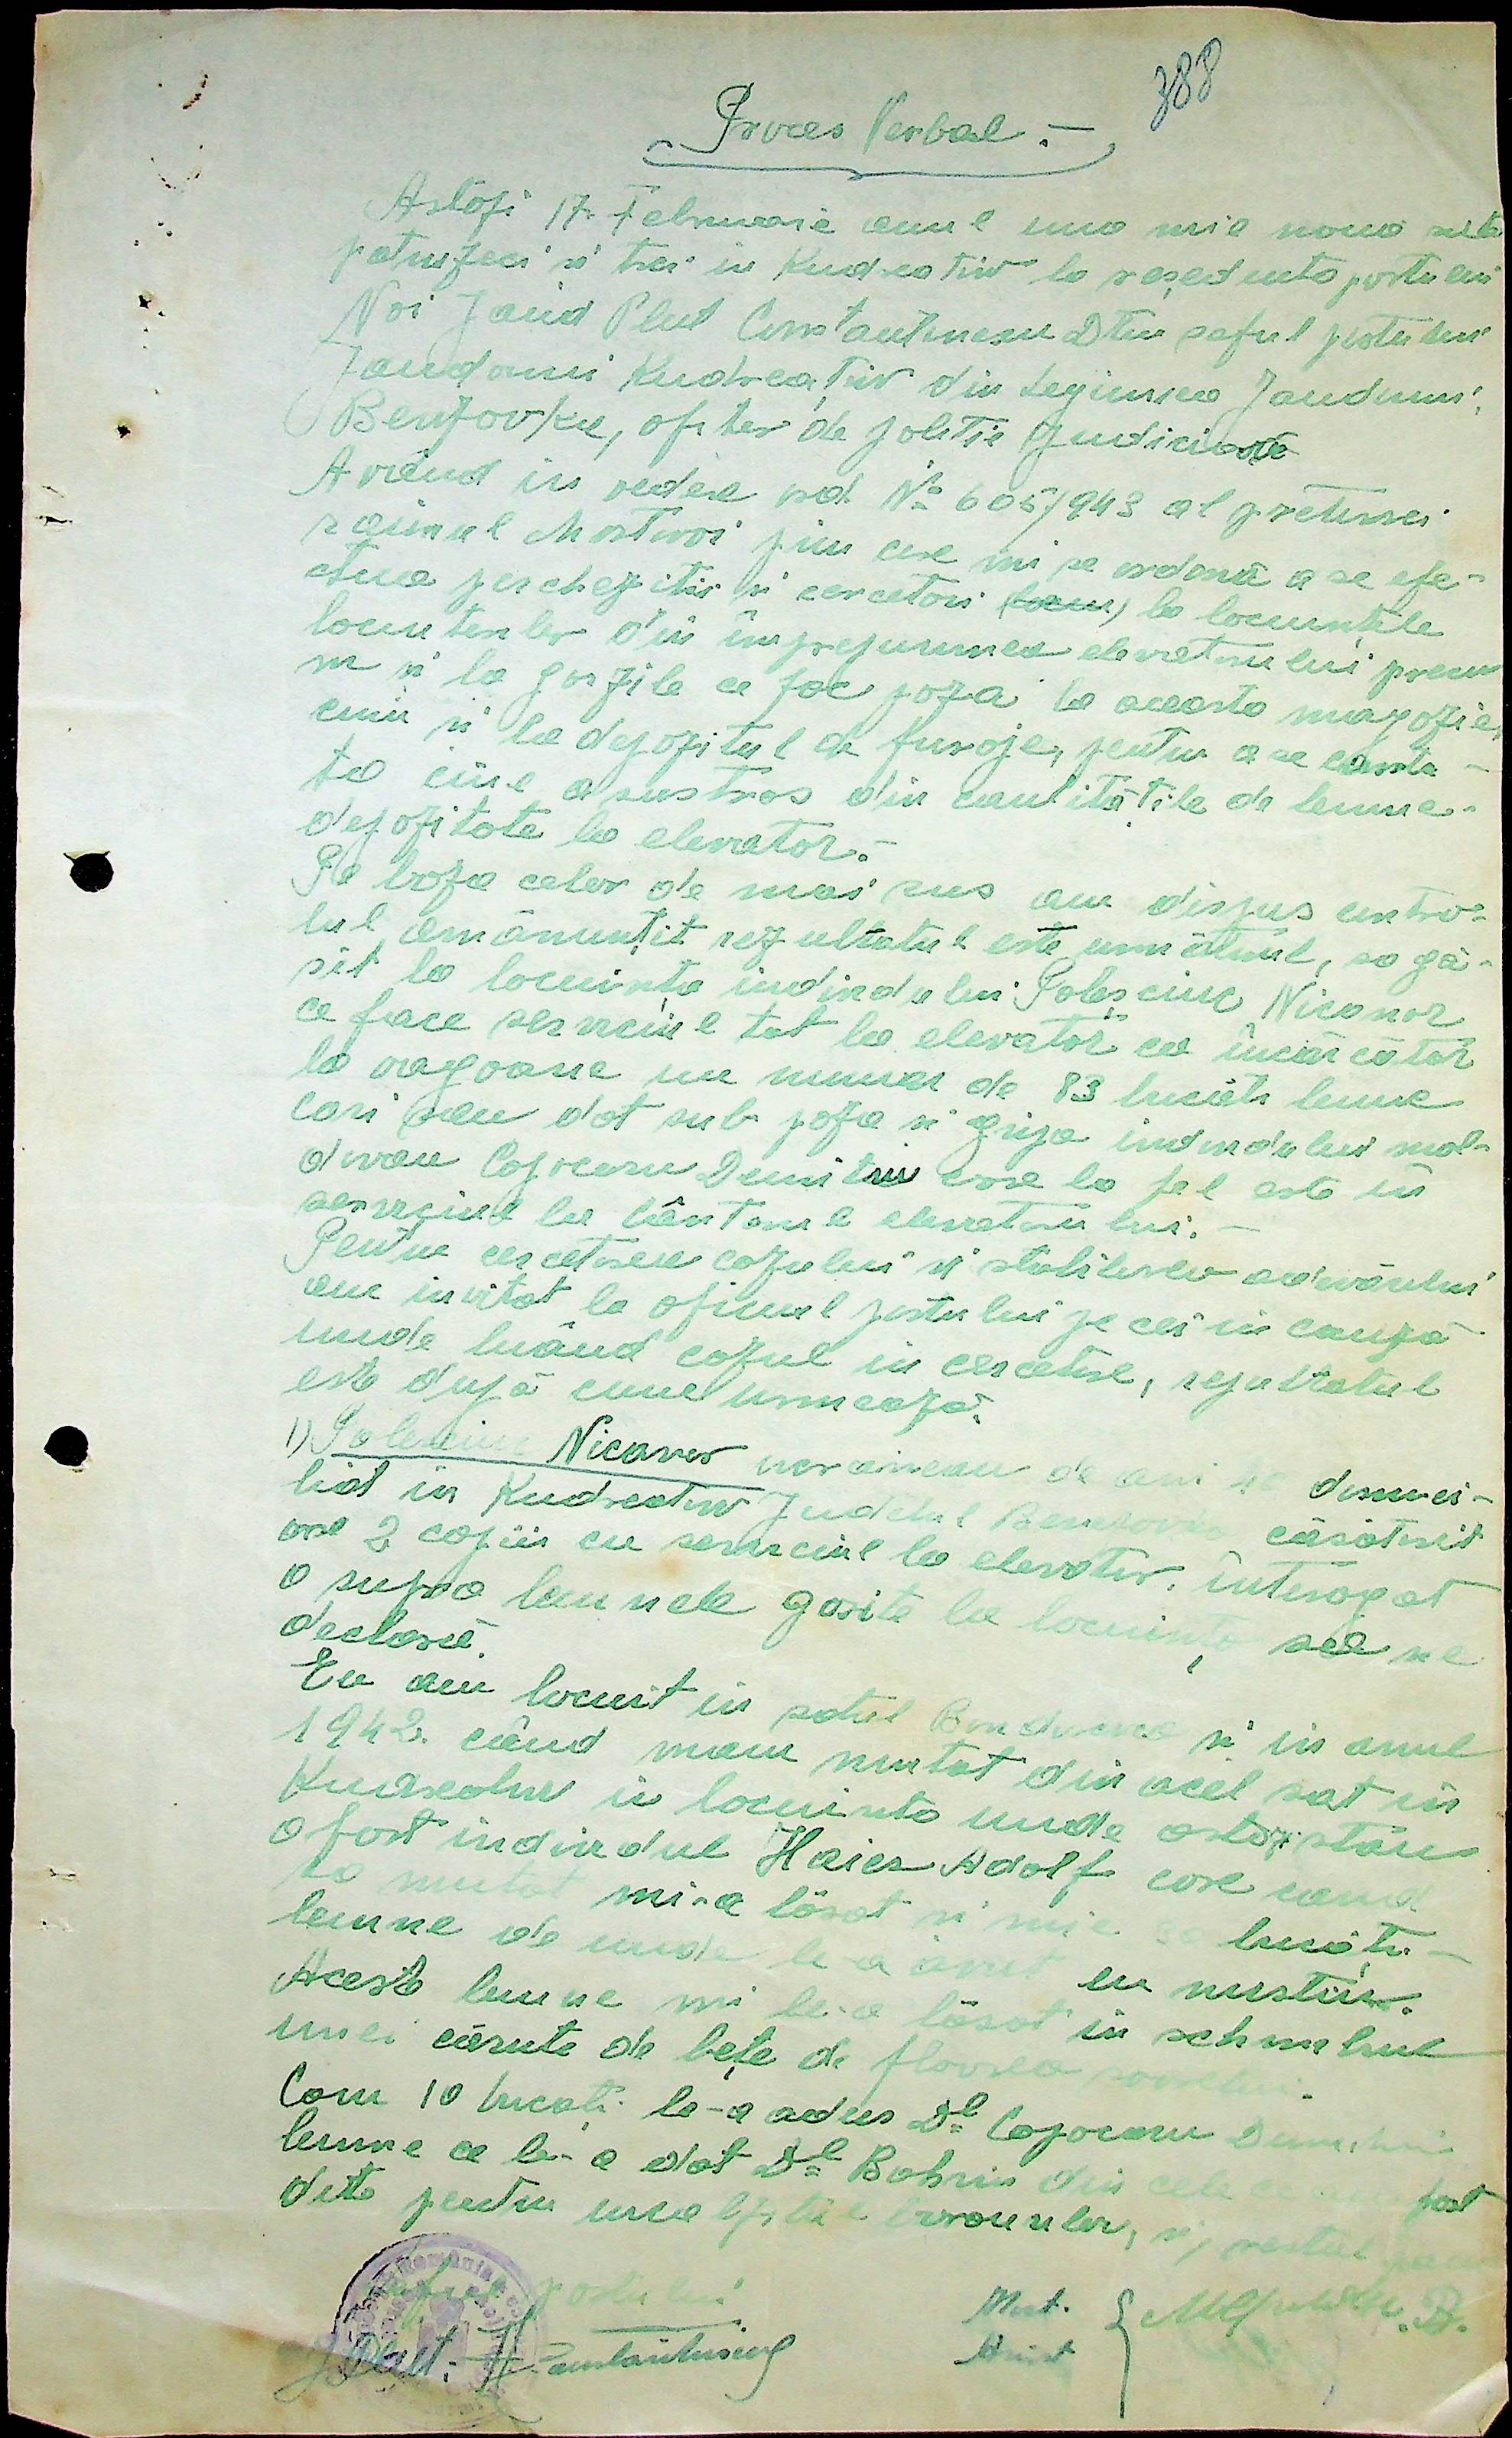 388
Proces Verbal.-
Astăzi 17. Februarie anul una mie nouă sute
patruzeci și trei in Kudreatiw la reședinta postului
Noi Jand Plut Constantinescu Dtru șeful postului
Jandarmi Kudreațiw din Legiunea Jandarmi,
Berezovka, ofițer de poliție Judiciară
Având in vedere ord. No 605/943 al preturei
raionul Mostwoi prin care mi se ordonă a se efe-
ctua perchezitii și cercetări la locuințele
locuitorilor din împrejurimea elevatorului precum
m și la gărzile ce fac poza la aceasta magazie,
cum și la depozitul de furaje, pentru a se consta-
ta cine a sustras din cantitățile de lemne
depozitate la elevator.-
Pe baza celor de mai sus am dispus contro-
lul amănunțit rezultatul este următorul, sa gă-
sit la locuința individului Polesciuc Nicanor
ce face serviciul tot la elevator ca încărcător
la vagoane un numar de 83 bucăti lemne
cari sau dat sub paza și grija individului mol-
dovan Cojocaru Dumitru care la fel este in
serviciul la cântarul elevatorului.-
Pentru cercetarea cazului și stabilirea adevărului
am invitat la oficiul postului pe cei in cauză
unde luând cazul in cercetare, rezultatul
este după cum urmează.
1) Polesciuc Nicanor ucrainean de ani domici-
liat in Kudreatiw Judetul Berezovca căsătorit
are 2 copii cu serviciul la elevator. întrogat
a supra lemnele gasite la locuința sa ne
declară.
Eu am locuit in satul și in anul
1942. când mam mutat din acel sat in
Kudreatiw in locuinta unde astăzi stau
a fost individul Haier Adolf care cand
sa mutat mi-a lăsat și mie bucăți-
lemne de unde le-a avut eu nu știu.
Aceste lemne mi le-a lăsat in schimbul
unei căruțe de bețe de floarea soarelui.
Cam 10 bucați. le-a adus Dl Cojocaru Dumitru
lemne ce le-a dat Dl Bohrin din cele ce au fost
date pentru incalzitul birourilor, și restul
Șeful postului
J. Plut. Constantinescu